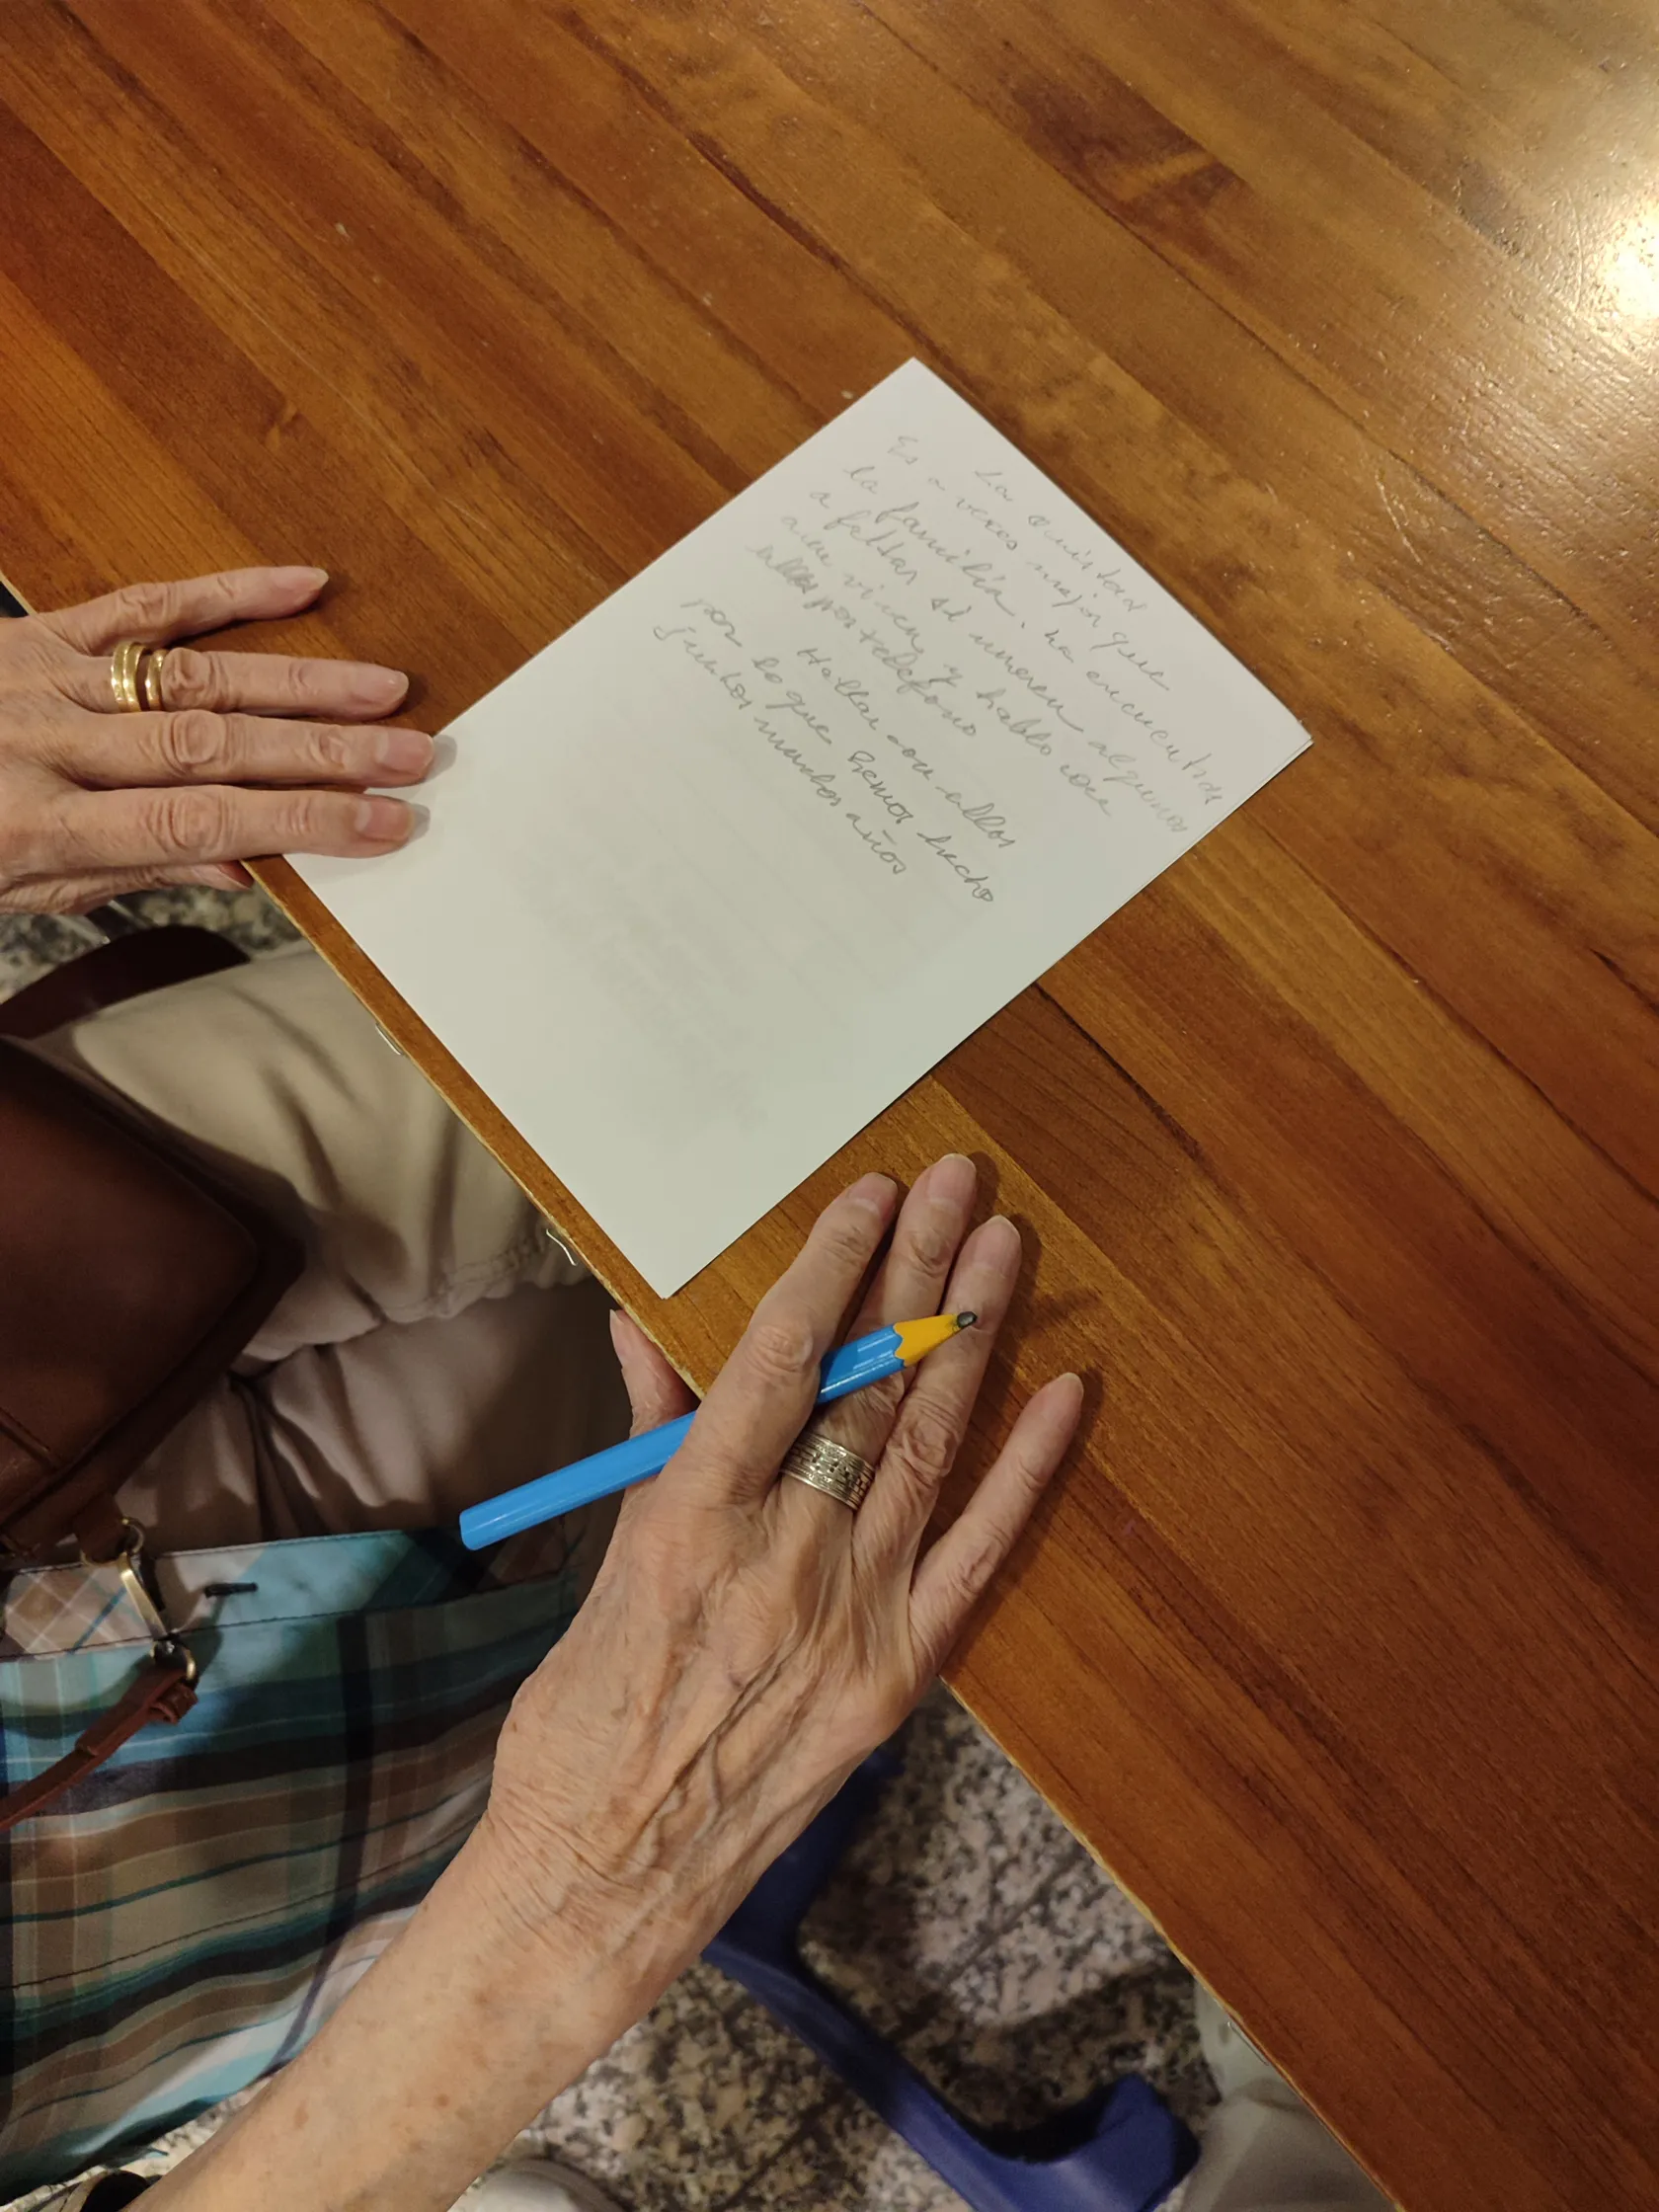 La amistad
Es a veces mejor que
la familia. ha encuentros
a faltar si mueren algunos
aun viven y hablo con
ellos por telefono
Hablar con ellos
por lo que hemos hecho
juntos muchos años